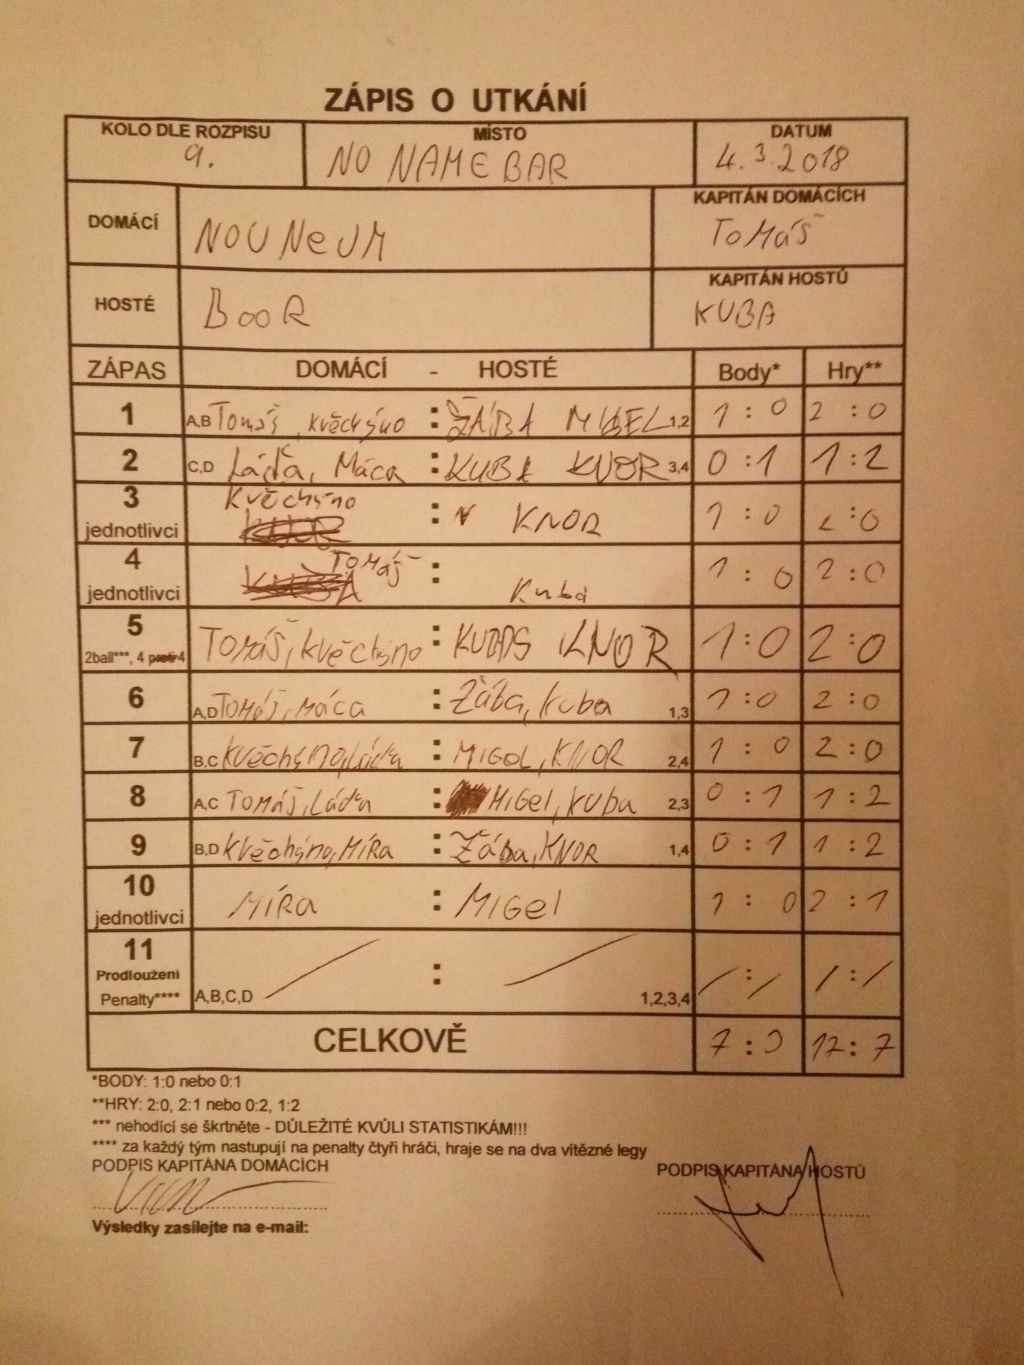 ZÁPIS O UTKÁNÍ
KOLO DLE ROZPISU MÍSTO DATUM
9. NO NAME BAR 4.3.2018
DOMÁCÍ NOU NeUM KAPITÁN DOMÁCÍCH
TOMÁŠ
HOSTÉ BOOR KAPITÁN HOSTŮ
KUBA
ZÁPAS DOMÁCÍ - HOSTÉ Body* Hry**
1 A,B Tomáš, Květhýno : ŽÁBA MIGEL 1,2 1:0 2:0
2 C,D Láďa, Máca : KUBA KNOR 3,4 0:1 1:2
3 jednotlivci Květhýno : KNOR 1:0 2:0
4 jednotlivci TOMÁŠ : Kuba 1:0 2:0
5 2ball***, 4 proti 4 TOMÁŠ, Květhýno : KNOR 1:0 2:0
6 A,D TOMÁŠ, Máca : Žába, Kuba 1,3 1:0 2:0
7 B,C Květhýno, Láďa : MIGEL, KNOR 2,4 1:0 2:0
8 A,C TOMÁŠ, Láďa : MIGEL, Kuba 2,3 0:1 1:2
9 B,D Květhýno, MÍRA : Žába, KNOR 1,4 0:1 1:2
10 jednotlivci MÍRA : MIGEL 1:0 2:1
11 Prodloužení Penalty**** A,B,C,D / : / 1,2,3,4 /:/ /:/
CELKOVĚ 7:3 17:7
*BODY: 1:0 nebo 0:1
**HRY: 2:0, 2:1 nebo 0:2, 1:2
*** nehodící se škrtněte - DŮLEŽITÉ KVŮLI STATISTIKÁM!!!
**** za každý tým nastupují na penalty čtyři hráči, hraje se na dva vítězné legy
PODPIS KAPITÁNA DOMÁCÍCH PODPIS KAPITÁNA HOSTŮ
Výsledky zasílejte na e-mail: